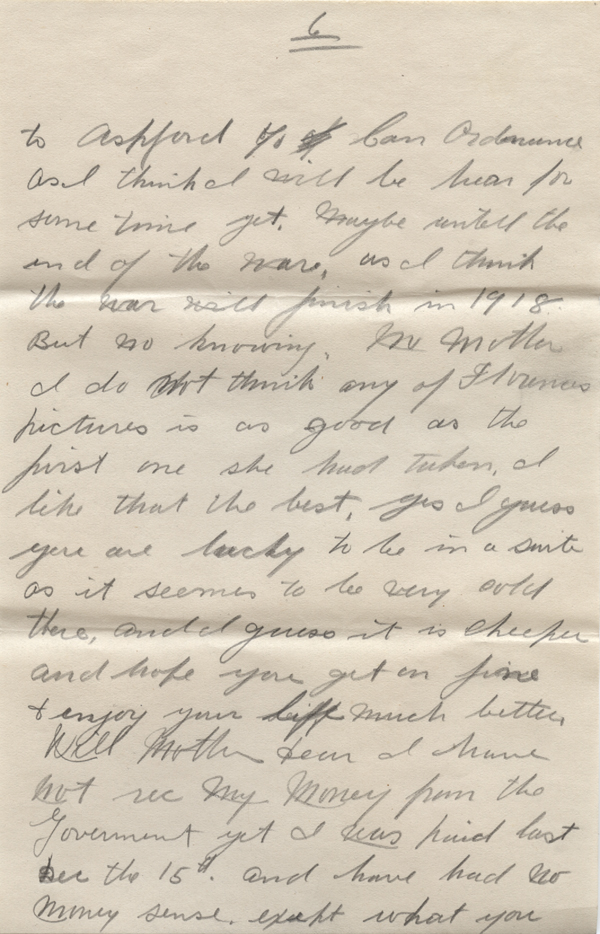 6
to Ashford c/o of Can Ordnance
as I think I will be hear for
some time yet. Maybe untell the
end of the ware, as I think
the war will finish in 1918.
But no knowing. No Mother
I do not think any of Florences
pictures is as good as the
first one she had taken, I
like that the best, yes I guess
you are lucky to be in a suite
as it seemes to be very cold
there, and I guess it is cheeper
and hope you get on fine
& enjoy your life much better,
Well Mother Dear I have
not rec My Money from the
Goverment yet I was paid last
Dec the 15th. and have had no
Money sense. exept what you